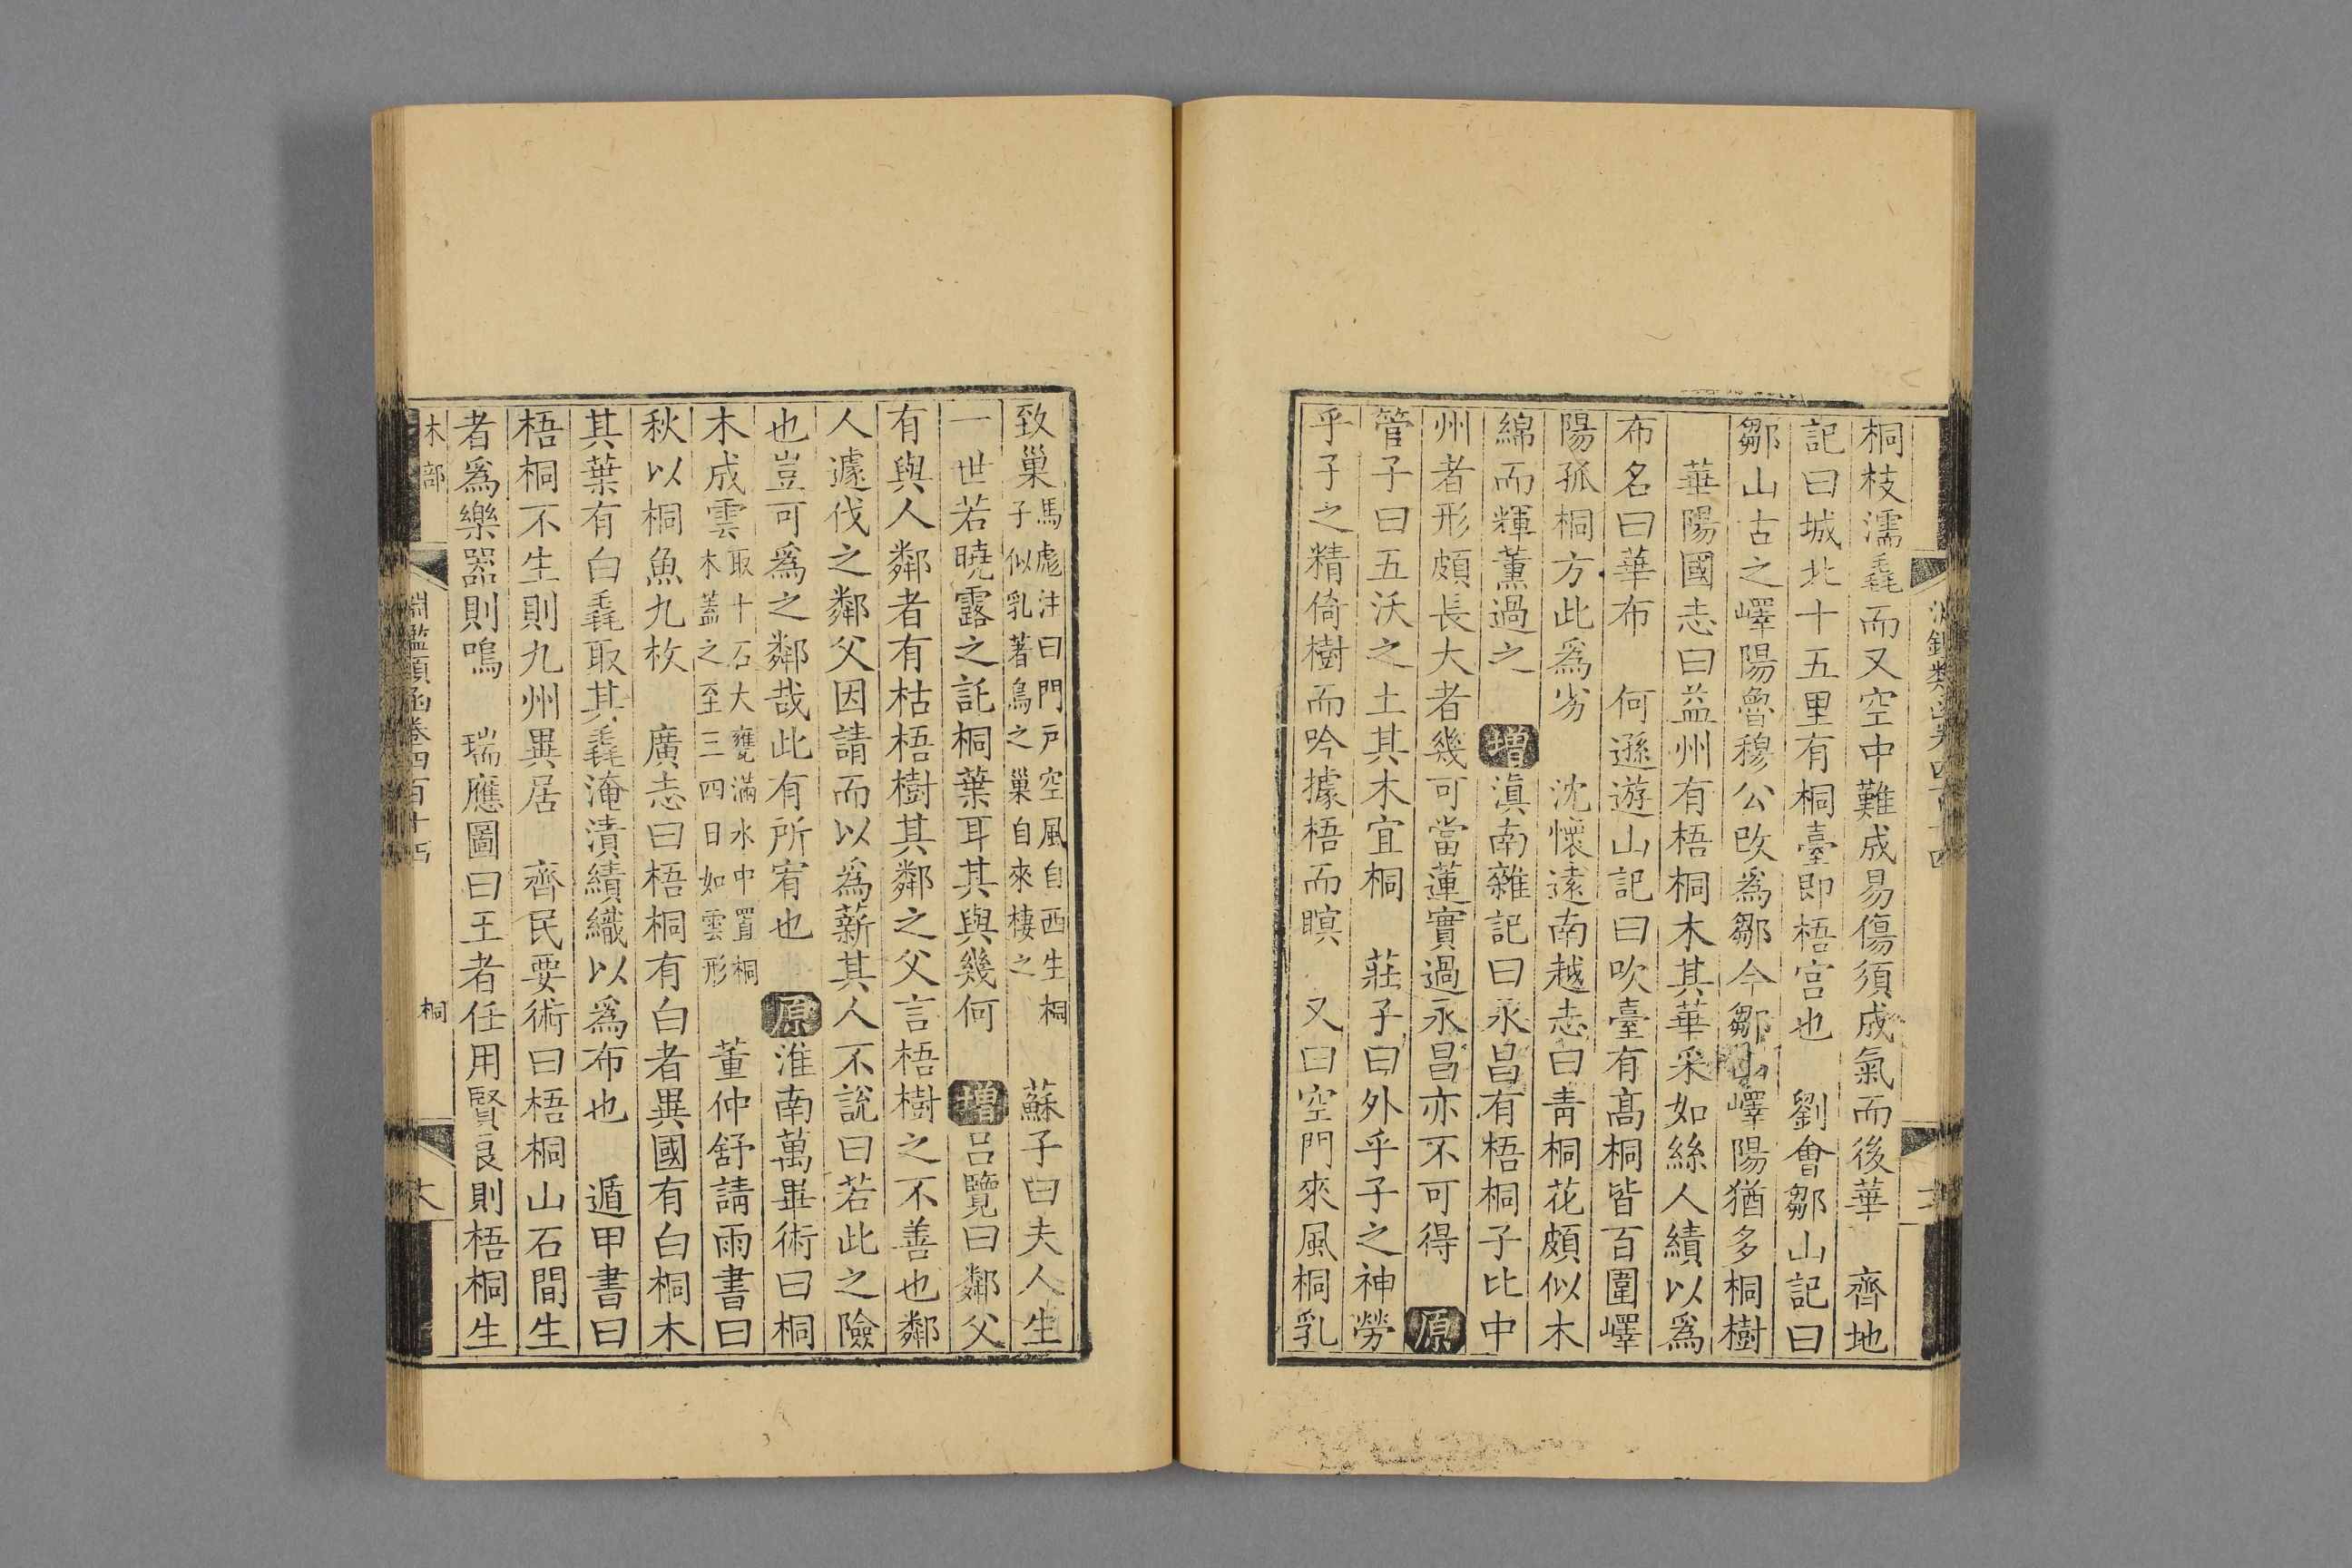 桐枝濡毳而又空中難成易傷須成氣而後華　齊地
記曰城北十五里有桐臺即梧宮也　劉會鄒山記曰
鄒山古之嶧陽魯穆公改爲鄒今鄒山嶧陽猶多桐樹
華陽國志曰益州有梧桐木其華采如絲人績以爲
布名曰華布　何遜遊山記曰吹臺有髙桐皆百圍嶧
陽孤桐方此爲劣　沈懷遠南越志曰青桐花頗似木
綿而輝薰過之　増滇南雜記曰永昌有梧桐子比中
州者形頗長大者幾可當蓮實過永昌亦不可得　原
管子曰五沃之土其木宜桐　莊子曰外乎子之神勞
乎子之精倚樹而吟據梧而瞑　又曰空門來風桐乳
致巢馬彪注曰門戸空風自西生桐子似乳著鳥之巢自來棲之　蘇子曰夫人生
一世若曉露之託桐葉耳其與幾何　増呂覽曰鄰父
有與人鄰者有枯梧樹其鄰之父言梧樹之不善也鄰
人遽伐之鄰父因請而以爲薪其人不說曰若此之險
也豈可爲之鄰哉此有所宥也　原淮南萬畢術曰桐
木成雲取十石大甕滿水中置桐木蓋之至三四日如雲形　董仲舒請雨書曰
秋以桐魚九枚　廣志曰梧桐有白者異國有白桐木
其葉有白毳取其毳淹漬績織以爲布也　遁甲書曰
梧桐不生則九州異居　齊民要術曰梧桐山石間生
者爲樂器則鳴　瑞應圖曰王者任用賢良則梧桐生
木部　淵鑑類函卷四百十五　桐